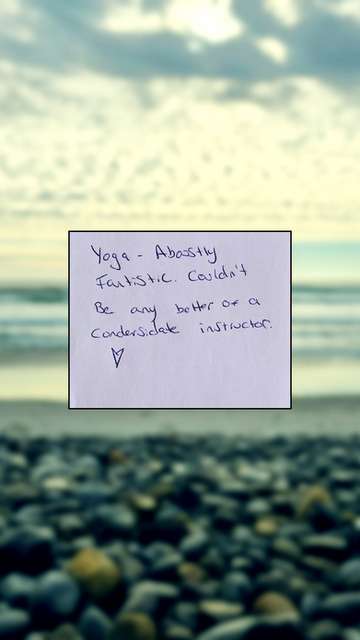 Yoga - Aboostly
Fantistic. Couldn't
Be any better of a
Condersidate instructor.